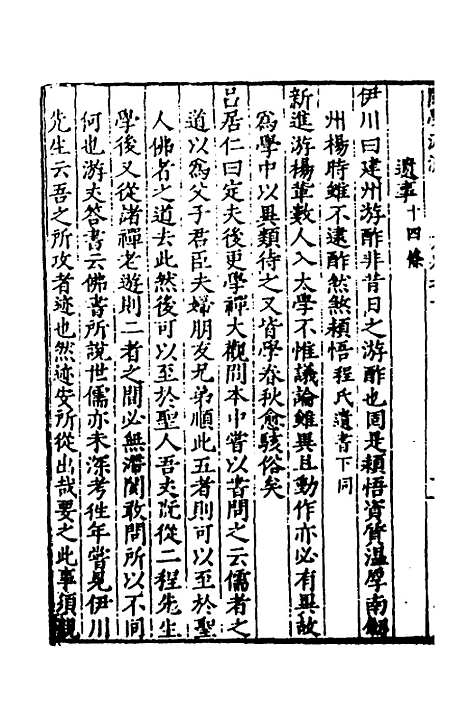 遺事十四條
伊川曰建州游酢非昔日之游酢也固是穎悟資質温厚南劍
州楊時雖不逮酢然煞穎悟程氏遺書下同
新進游楊輩數人入太學不惟議論雖異且動作亦必有異故
為學中以異類待之又皆學春秋愈駭俗矣
吕居仁曰定夫後更學禪大觀間本中嘗以書問之云儒者之
道以為父子君臣夫婦朋友兄弟順此五者則可以至於聖
人佛者之道去此然後可以至於聖人吾丈既從二程先生
學後又從諸禪老遊則二者之間必無滯閡敢問所以不同
何也游丈答書云佛書所說世儒亦未深考徃年嘗見伊川
先生云吾之所攻者迹也然迹安所從出哉要之此事須親